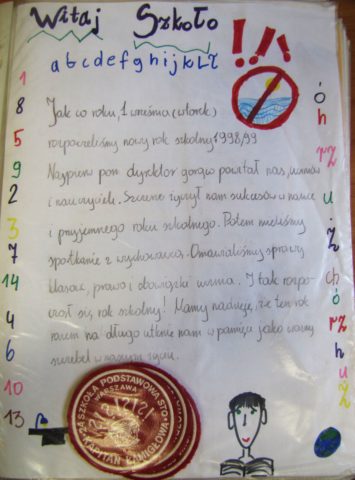 Witaj Szkoło !!!
a b c d e f g h i j k l ł
1
8
5
9
2
3
7
14
4
6
10
13
Jak co roku, 1 września (wtorek)
rozpoczeliśmy nowy rok szkolny 1998/99
Najpierw pan dyrektor gorąco powitał nas, uczniów
i nauczycieli. Szczerze życzył nam sukcesów w nauce
i przyjemnego roku szkolnego. Potem mieliśmy
spotkanie z wychowawcą. Omawialiśmy sprawy
klasowe, prawa i obowiązki ucznia. I tak rozpo-
czął się rok szkolny! Mamy nadzieję, że ten rok
razem na długo utknie nam w pamięci jako ważny
szczebel w naszym życiu.
ó
h
rz
u
ż
ch
ó
rz
h
u
ż
SZKOŁA PODSTAWOWA
WARSZAWA
KAPITAN